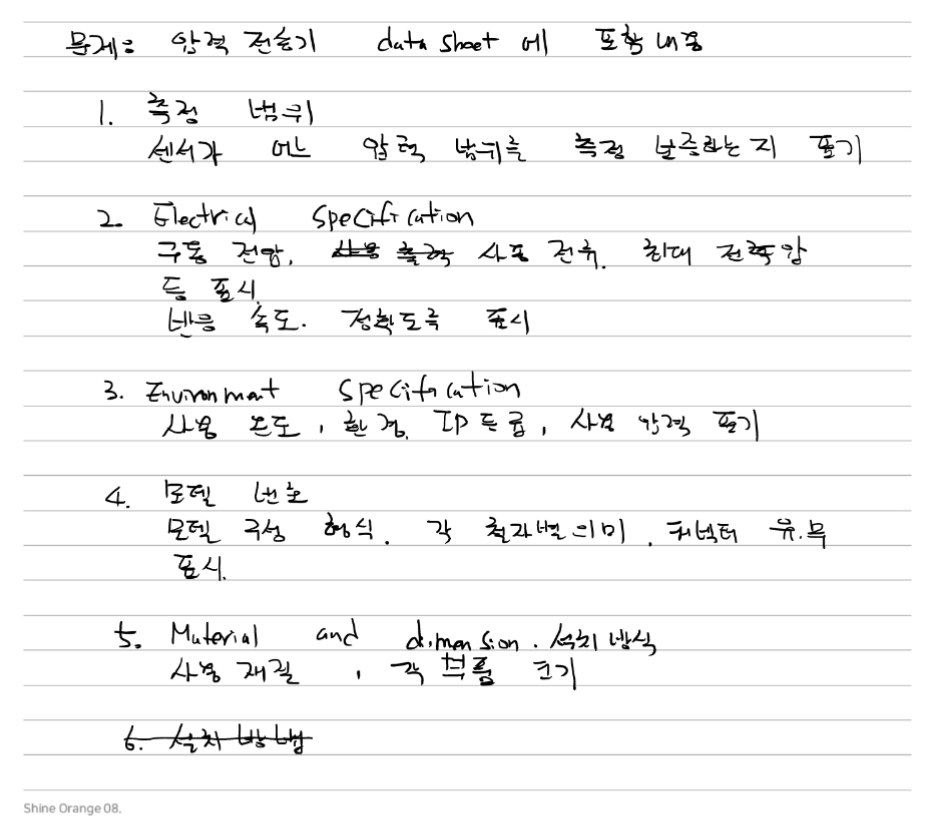 문제: 압력 전송기 data sheet 에 포함 내용
1. 측정 범위
센서가 어느 압력 범위를 측정 보증하는지 표기
2. Electrical Specification
구동 전압, 사용 출력 사용 전류. 최대 전압
등 표시.
반응 속도. 정확도를 표시
3. Environment Specification
사용 온도, 환경. IP 등급, 사용 압력 표기
4. 모델 번호
모델 구성 형식. 각 철자별 의미. 커넥터 유.무
표시.
5. Material and dimension. 설치 방식
사용 재질, 각 부품 크기
6. 설치 방법
Shine Orange 08.